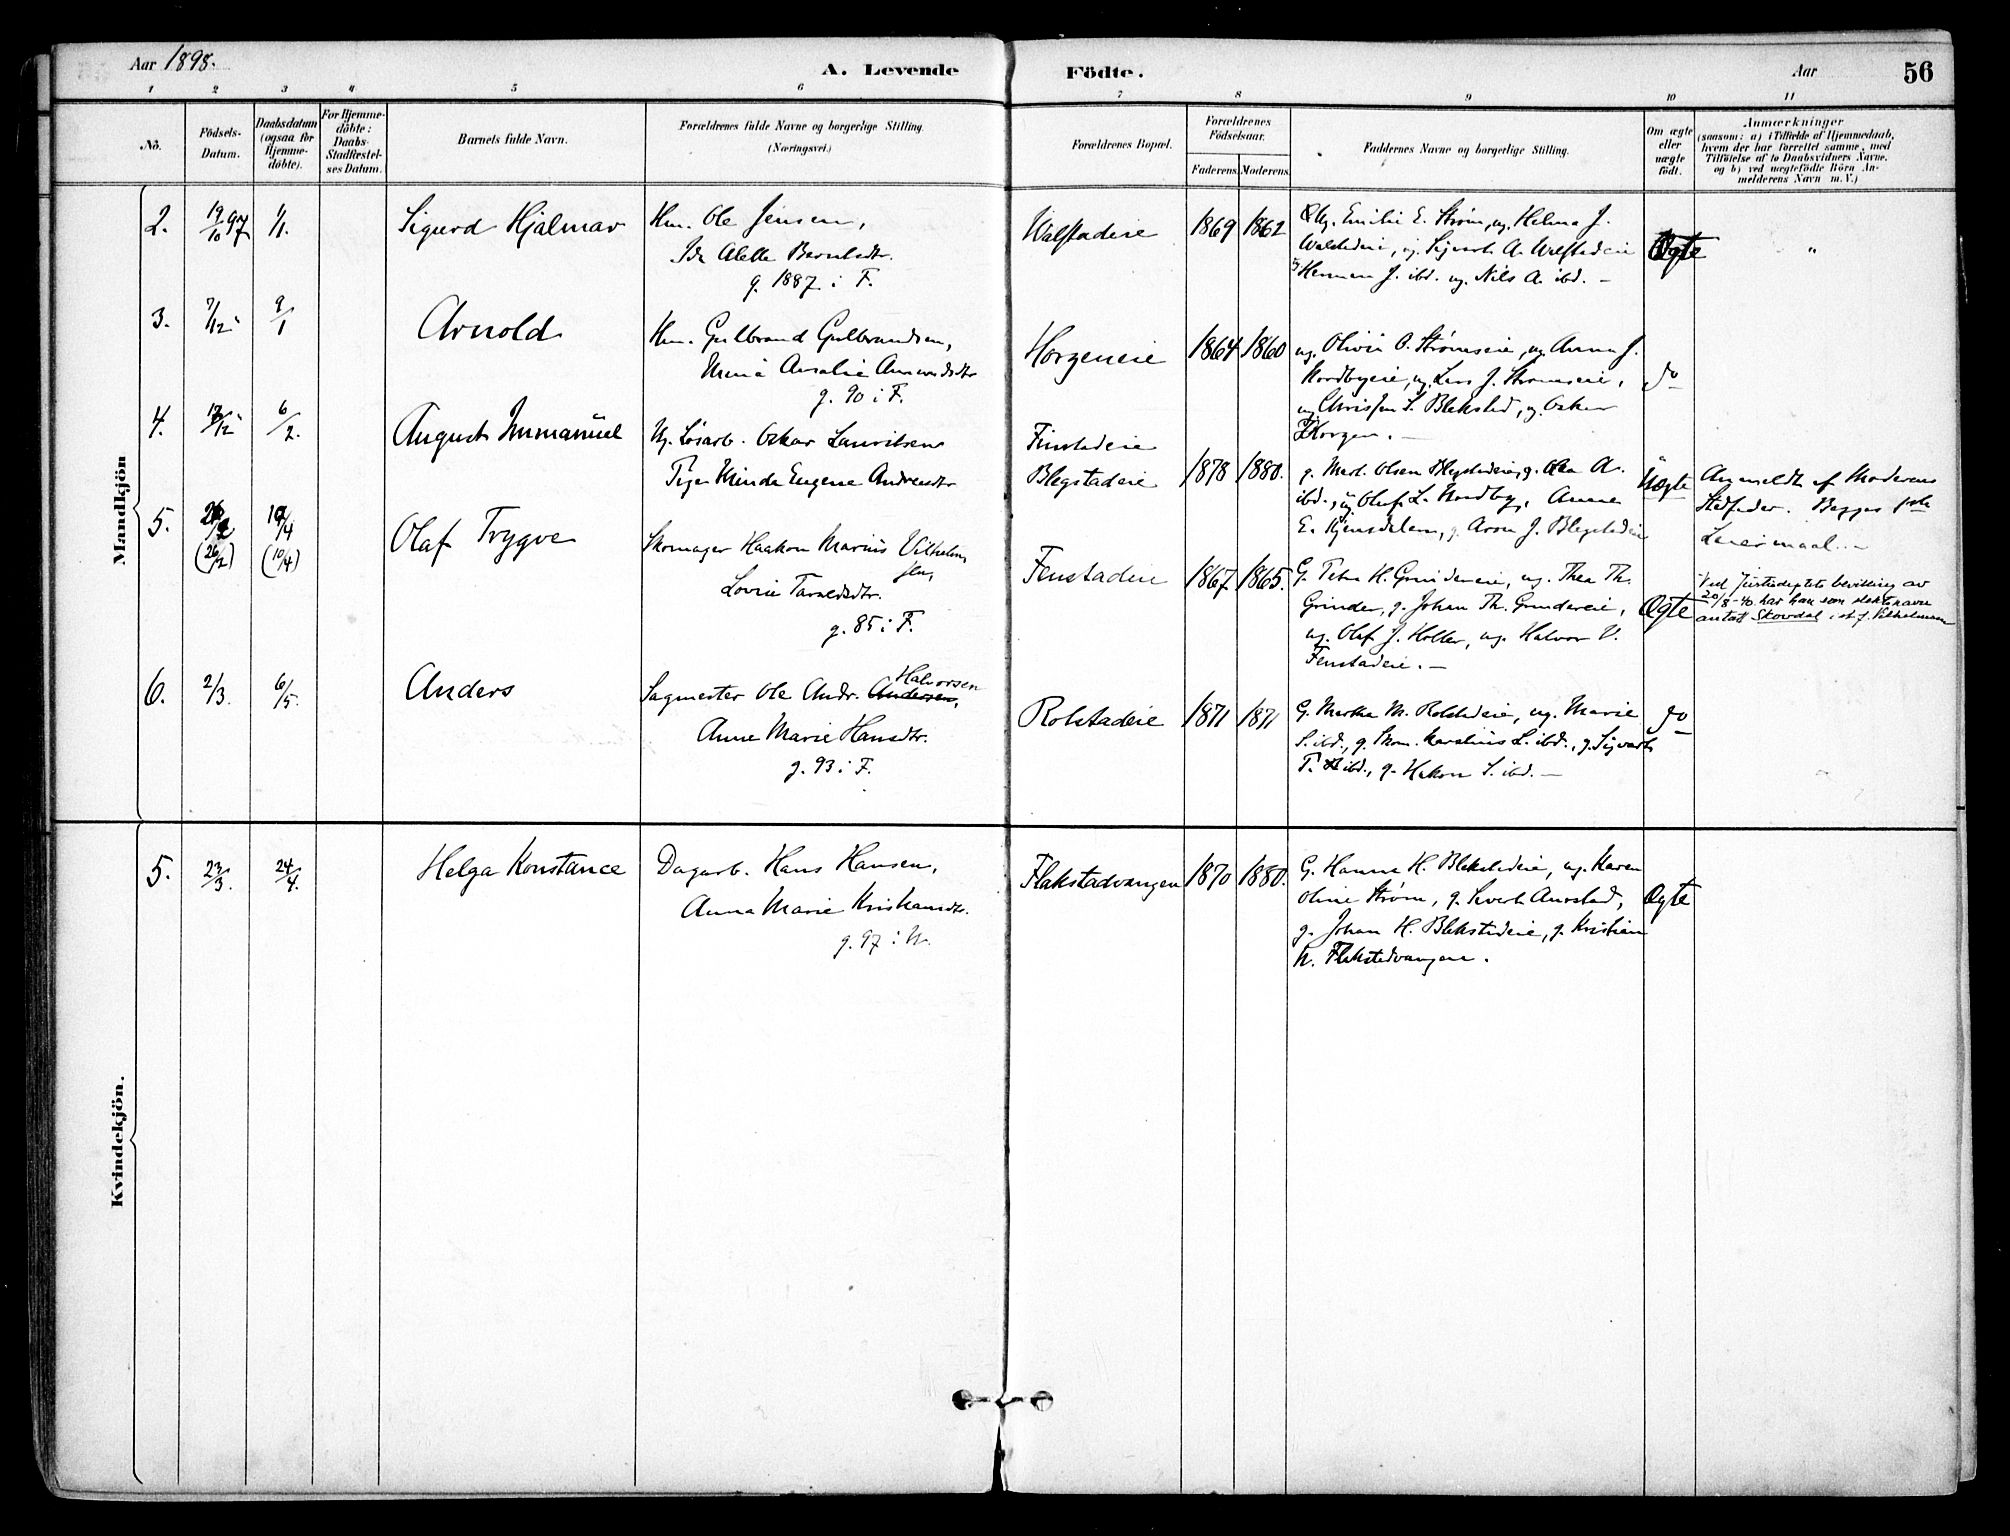 Aar 1898.
A. Levende Födte.
Aar 56
1 2 3 4 5 6 7 8 9 10 11
No.
Födsels-Datum.
Daabsdatum (ogsaa for Hjemme-döbte).
For Hjemme-döbte: Daabs-Stadfæstel-ses Datum.
Barnets fulde Navn.
Forældrenes fulde Navne og borgerlige Stilling.
(Næringsvei.)
Forældrenes Bopæl.
Forældrenes Födselsaar.
Faderens. Moderens.
Faddernes Navne og borgerlige Stilling.
Om ægte eller uægte födt.
Anmærkninger
(saasom: a) i Tilfælde af Hjemmedaab,
hvem der har forrettet samme, med
Tilföielse af to Daabsvidners Navne,
og b) ved uægtefödte Börn An-
melderens Navn m. V.)
Mandkjön
2. 19/10 97 1/1. Sigurd Hjalmar
Hm. Ole Jensen,
Alette Berntsdtr.
g. 1887 i F.
Walstadeie 1869 1862
Ug. Emilie E. Strøm, ug. Helma J.
Walstadeie, ug. Sigvart A. Walstadeie
Herman J. ibd. ug. Nils A. ibd. –
Ægte "
3. 7/12 9/1 Arnold
Hm. Gulbrand Gulbrandsen,
Amalie
g. 90 i F.
Horgeneie 1864 1860
ug. Olivia O. Strømseie, ug. Anna J.
Nordbyeie, ug. Lars J. Strømseie,
ug. S. Blekstad, ug. Oskar
Horgen. –
do
4. 17/12 6/2. August Immanuel
Ug. Løsarb. Oskar Lauritsen
Pige Minda Eugene Andreasdtr
Finstadeie
Blegstadeie 1878 1880.
g. Mart. Olsen Blegstadeie, g. Olea A.
ibd., ug. Oluf L. Nordby, Anne
E. g. Aron J. Blegstadeie
Uægte
Anmeldt af Moderens
Stedfader. Begges 1ste
Leiermaal. –
5. (26/2) (10/4) Olaf Trygve
Skomager Haakon Marius Vilhelm
sen,
Lovise
g. 85 i F.
Fenstadeie 1867. 1865.
G. H. Grindereie, ug. Thea Th.
Grinder, g. Johan Th. Grindereie,
ug. Olaf J. Holter, ug. Halvor V.
Fenstadeie. –
Ægte
Ved Justisdeptets bevilling av
20/8-40 har han som slektsnavn
antatt Skovdal i st. f. Vilhelmsen
6. 2/3. 6/5. Anders
Halvorsen
Sagmester Ole Andr. Andersen,
Anne Marie Hansdtr.
g. 93 i F.
Rolstadeie 1871 1871
G. Martha M. Rolstadeie, ug. Marie
S. ibd., g. Skom. Karelius L. ibd., g. Sigvart
T. ibd., g. Hakon S. ibd. –
do
Kvindekjön.
5. 23/3. 24/4. Helga Konstance
Dagarb. Hans Hansen,
Anna Marie Kristiansdtr.
g. 97 i N.
Flakstadvangen 1870 1880.
G. Hanna H. Blekstadeie, ug. Karen
Oline Strøm, g. Sivert Aurstad,
g. Johan H. Blekstadeie, g. Kristian
N. Flakstadvangen.
Ægte